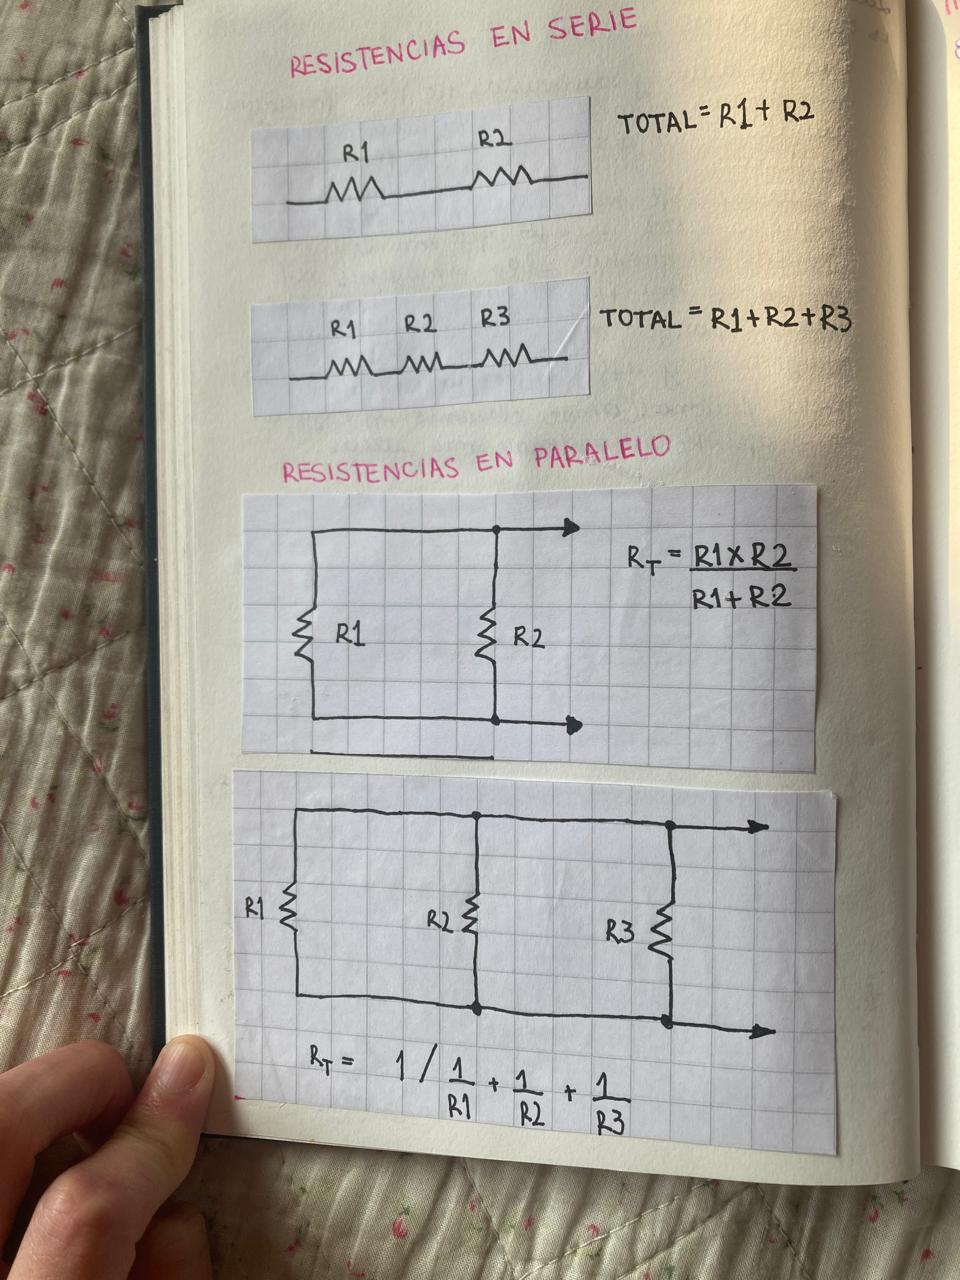 RESISTENCIAS EN SERIE
R1 R2
TOTAL = R1 + R2
R1 R2 R3
TOTAL = R1+R2+R3
RESISTENCIAS EN PARALELO
R1 R2
RT = R1 X R2
R1 + R2
R1 R2 R3
RT = 1 / 1/R1 + 1/R2 + 1/R3